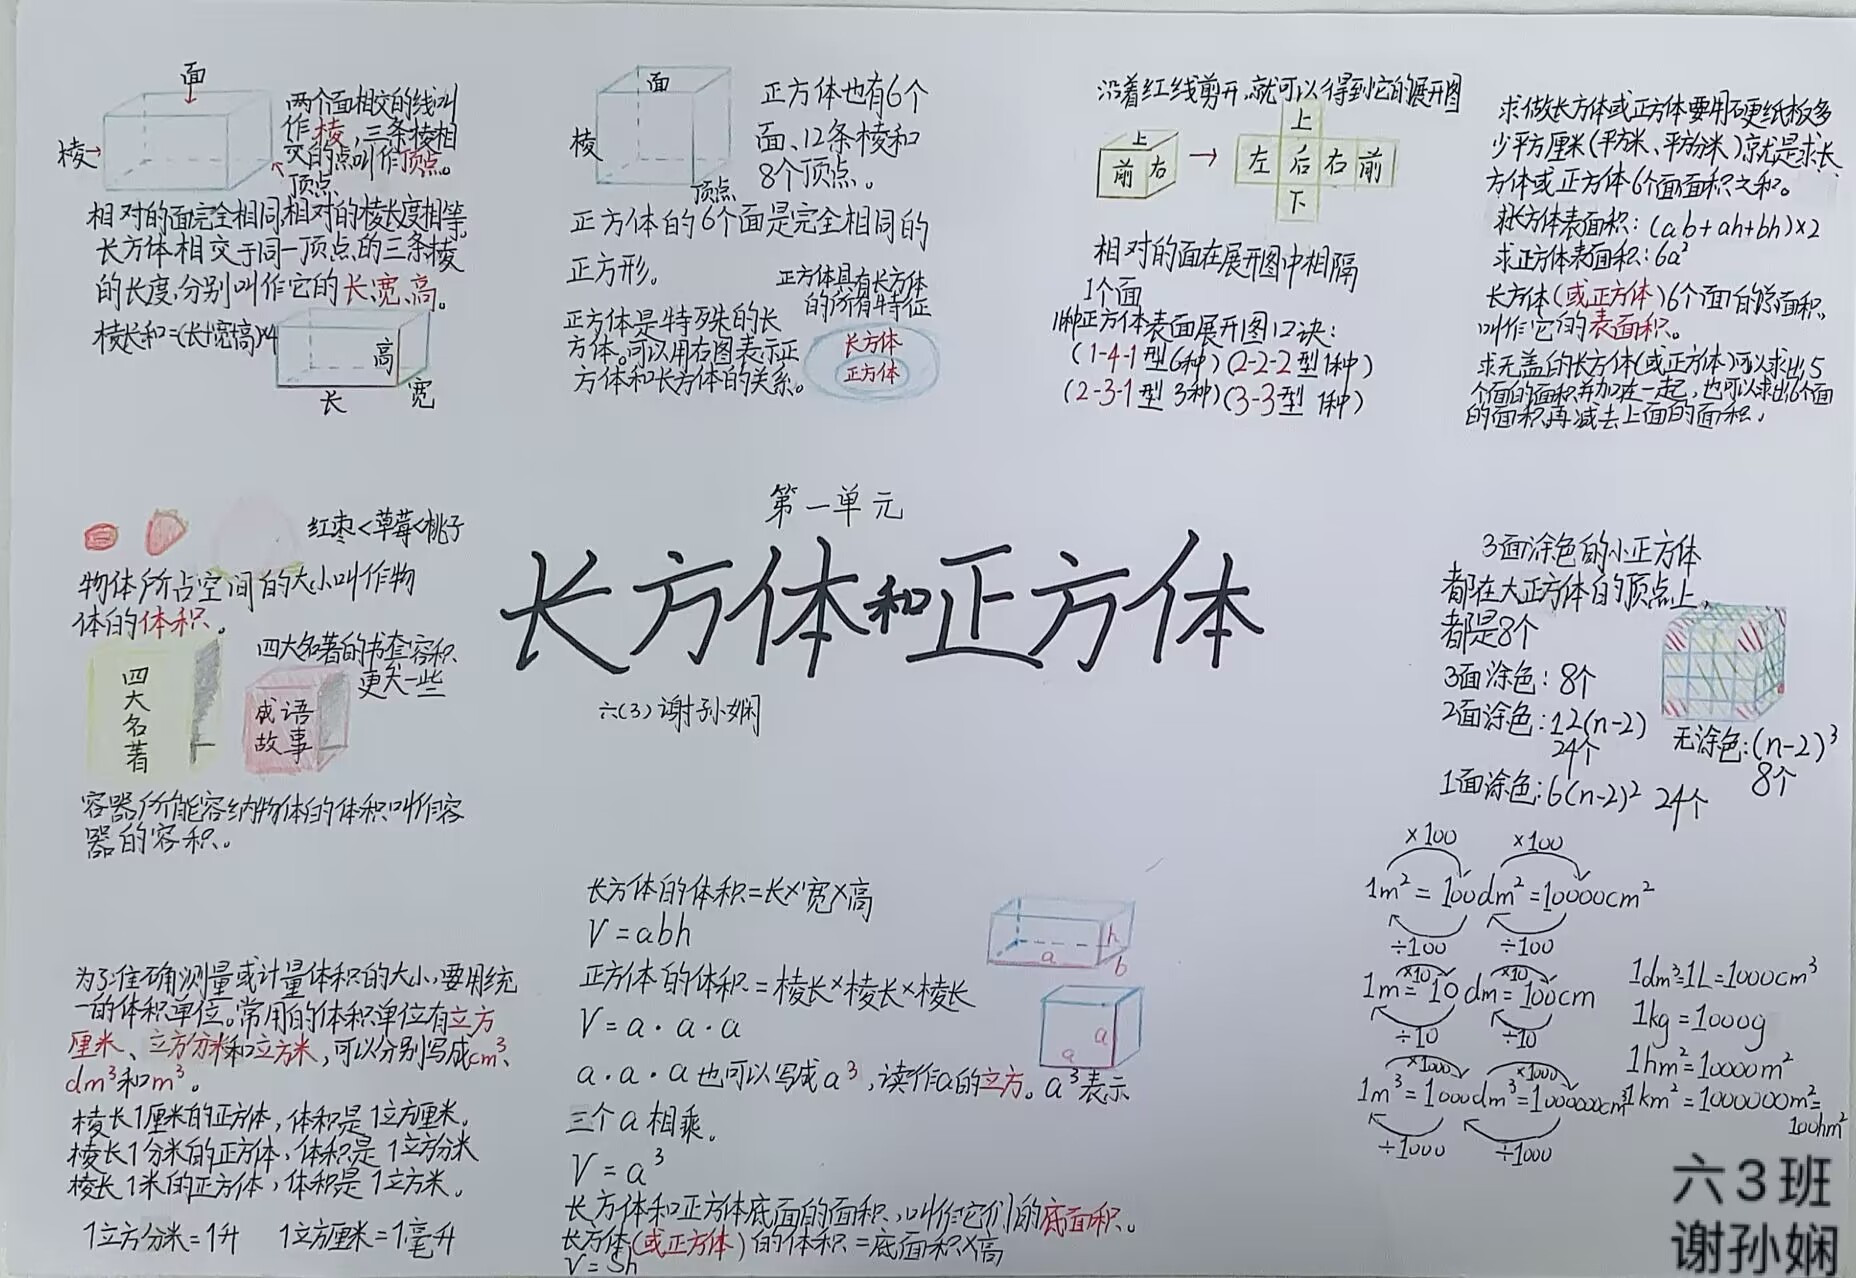 面
棱→
两个面相交的线叫
作棱,三条棱相
交的点叫作顶点。
顶点
相对的面完全相同,相对的棱长度相等。
长方体相交于同一顶点的三条棱
的长度,分别叫作它的长、宽、高。
棱长和=(长+宽+高)×4
高
长
宽
面
棱
顶点
正方体也有6个
面、12条棱和
8个顶点。
正方体的6个面是完全相同的
正方形。
正方体具有长方体
的所有特征
正方体是特殊的长
方体。可以用右图表示正
方体和长方体的关系。
长方体
正方体
沿着红线剪开,就可以得到它的展开图
上
前 右
→
上
左 后 右 前
下
相对的面在展开图中相隔
1个面
11种正方体表面展开图口诀:
(1-4-1型6种)(2-2-2型1种)
(2-3-1型 3种)(3-3型 1种)
求做长方体或正方体要用硬纸板多
少平方厘米(平方米、平方分米)就是求长
方体或正方体6个面面积之和。
求长方体表面积:(ab+ah+bh)×2
求正方体表面积:6a²
长方体(或正方体)6个面的总面积,
叫作它的表面积。
求无盖的长方体(或正方体)可以求出5
个面的面积并加在一起,也可以求出6个面
的面积再减去上面的面积,
红枣<草莓<桃子
物体所占空间的大小叫作物
体的体积。
四大名著
成语
故事
四大名著的书套容积
更大一些
容器所能容纳物体的体积叫作容
器的容积。
第一单元
长方体和正方体
六(3)谢孙娴
3面涂色的小正方体
都在大正方体的顶点上,
都是8个
3面涂色:8个
2面涂色:12(n-2)
24个
无涂色:(n-2)³
8个
1面涂色:6(n-2)² 24个
为了准确测量或计量体积的大小,要用统
一的体积单位。常用的体积单位有立方
厘米、立方分米和立方米,可以分别写成cm³、
dm³和m³。
棱长1厘米的正方体,体积是1立方厘米。
棱长1分米的正方体,体积是1立方分米
棱长1米的正方体,体积是1立方米。
1立方分米=1升 1立方厘米=1毫升
长方体的体积=长×宽×高
V=abh
a
h
b
正方体的体积=棱长×棱长×棱长
V=a·a·a
a
a
a·a·a也可以写成a³,读作a的立方。a³表示
三个a相乘。
V=a³
长方体和正方体底面的面积,叫作它们的底面积。
长方体(或正方体)的体积=底面积×高
V=Sh
×100 ×100
1m²=100dm²=10000cm²
÷100 ÷100
×10 ×10
1m=10dm=100cm
÷10 ÷10
×1000 ×1000
1m³=1000dm³=1000000cm³
÷1000 ÷1000
1dm³=1L=1000cm³
1kg=1000g
1hm²=10000m²
1km²=1000000m²=
100hm²
六3班
谢孙娴